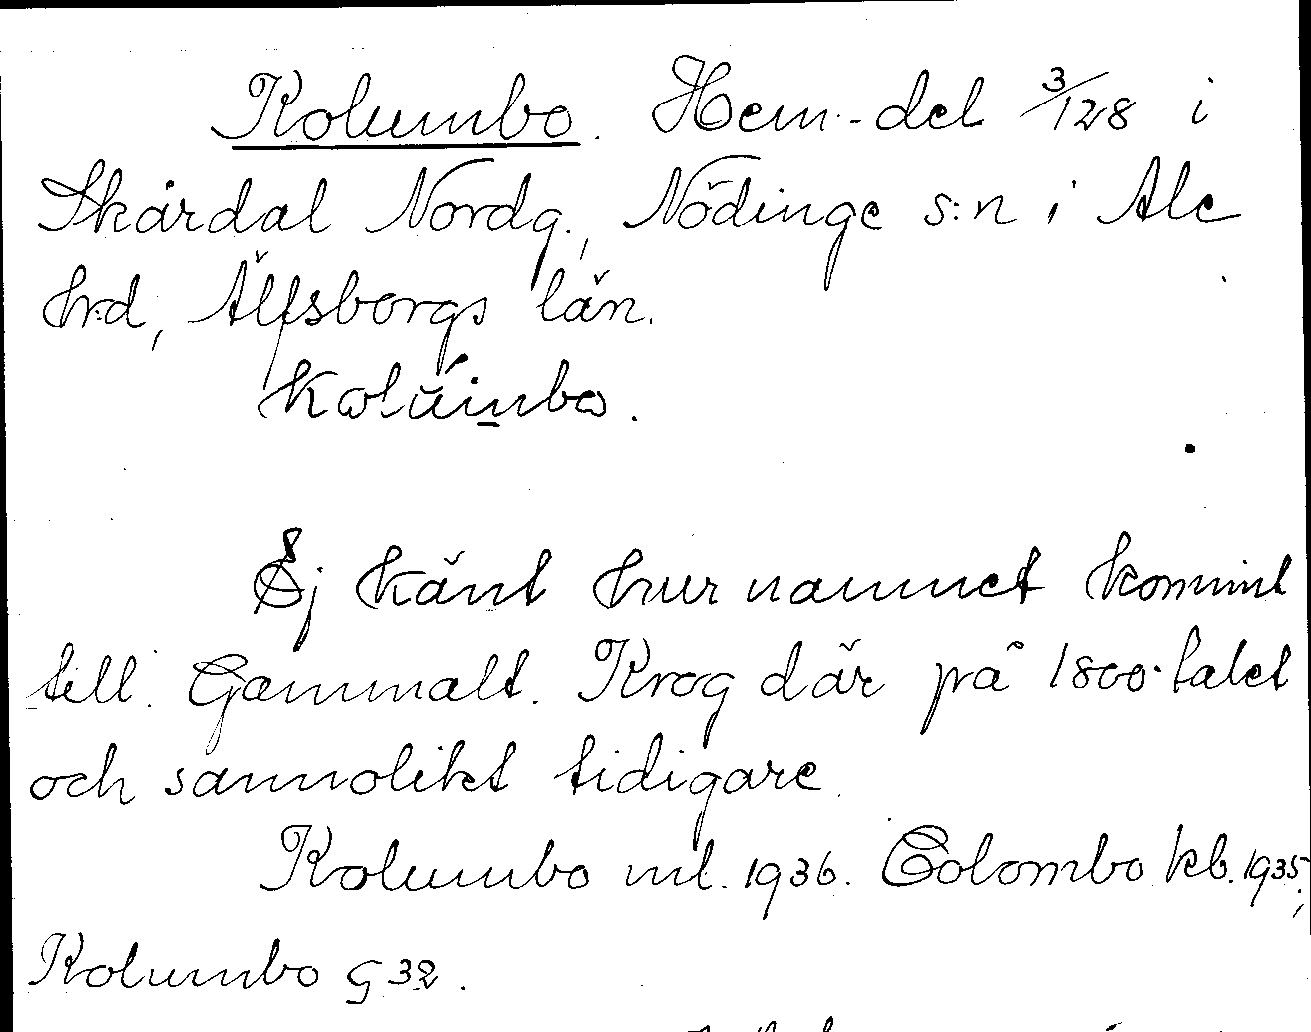 Kolumbo. Hem.-del 3/128 i
Skårdal Nordg., Nödinge s:n i Ale
hrd, Älfsborgs län.
Ej känt hur namnet kommit
till. Gammalt. Krog där på 1800-talet
och sannolikt tidigare.
Kolumbo ml. 1936. Colombo kb. 1935;
Kolumbo G 32.